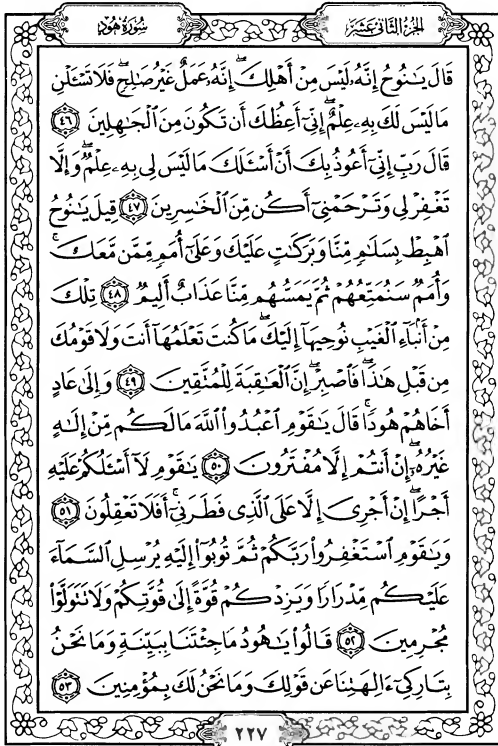 سُورَةُ هُود
الجزء الثاني عشر
قَالَ يَٰنُوحُ إِنَّهُۥ لَيْسَ مِنْ أَهْلِكَ ۖ إِنَّهُۥ عَمَلٌ غَيْرُ صَٰلِحٍ ۖ فَلَا تَسْـَٔلْنِ
مَا لَيْسَ لَكَ بِهِۦ عِلْمٌ ۖ إِنِّىٓ أَعِظُكَ أَن تَكُونَ مِنَ ٱلْجَٰهِلِينَ ٤٦
قَالَ رَبِّ إِنِّىٓ أَعُوذُ بِكَ أَنْ أَسْـَٔلَكَ مَا لَيْسَ لِى بِهِۦ عِلْمٌ ۖ وَإِلَّا
تَغْفِرْ لِى وَتَرْحَمْنِىٓ أَكُن مِّنَ ٱلْخَٰسِرِينَ ٤٧ قِيلَ يَٰنُوحُ
ٱهْبِطْ بِسَلَٰمٍ مِّنَّا وَبَرَكَٰتٍ عَلَيْكَ وَعَلَىٰٓ أُمَمٍ مِّمَّن مَّعَكَ ۚ
وَأُمَمٌ سَنُمَتِّعُهُمْ ثُمَّ يَمَسُّهُم مِّنَّا عَذَابٌ أَلِيمٌ ٤٨ تِلْكَ
مِنْ أَنۢبَآءِ ٱلْغَيْبِ نُوحِيهَآ إِلَيْكَ ۖ مَا كُنتَ تَعْلَمُهَآ أَنتَ وَلَا قَوْمُكَ
مِن قَبْلِ هَٰذَا ۖ فَٱصْبِرْ ۖ إِنَّ ٱلْعَٰقِبَةَ لِلْمُتَّقِينَ ٤٩ وَإِلَىٰ عَادٍ
أَخَاهُمْ هُودًا ۚ قَالَ يَٰقَوْمِ ٱعْبُدُوا۟ ٱللَّهَ مَا لَكُم مِّنْ إِلَٰهٍ
غَيْرُهُۥٓ ۖ إِنْ أَنتُمْ إِلَّا مُفْتَرُونَ ٥٠ يَٰقَوْمِ لَآ أَسْـَٔلُكُمْ عَلَيْهِ
أَجْرًا ۖ إِنْ أَجْرِىَ إِلَّا عَلَى ٱلَّذِى فَطَرَنِىٓ ۚ أَفَلَا تَعْقِلُونَ ٥١
وَيَٰقَوْمِ ٱسْتَغْفِرُوا۟ رَبَّكُمْ ثُمَّ تُوبُوٓا۟ إِلَيْهِ يُرْسِلِ ٱلسَّمَآءَ
عَلَيْكُم مِّدْرَارًا وَيَزِدْكُمْ قُوَّةً إِلَىٰ قُوَّتِكُمْ وَلَا تَتَوَلَّوْا۟
مُجْرِمِينَ ٥٢ قَالُوا۟ يَٰهُودُ مَا جِئْتَنَا بِبَيِّنَةٍ وَمَا نَحْنُ
بِتَارِكِىٓ ءَالِهَتِنَا عَن قَوْلِكَ وَمَا نَحْنُ لَكَ بِمُؤْمِنِينَ ٥٣
٢٢٧